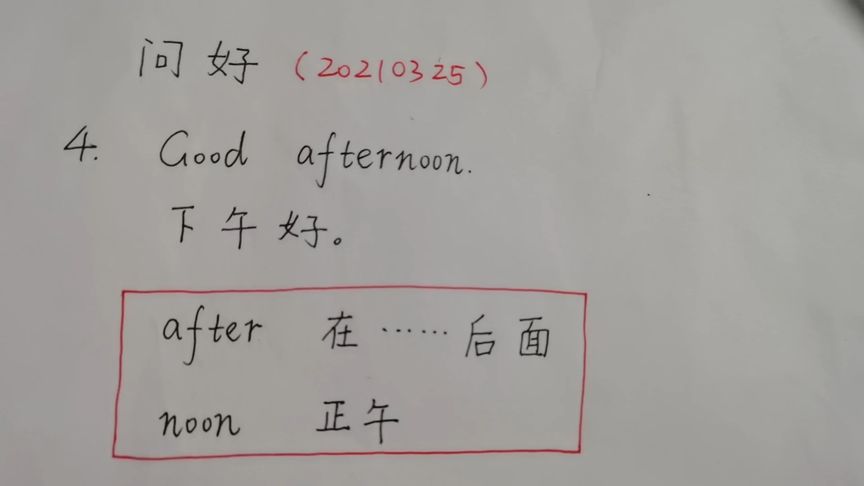 问好（20210325）
4. Good afternoon.
下午好。
after 在……后面
noon 正午